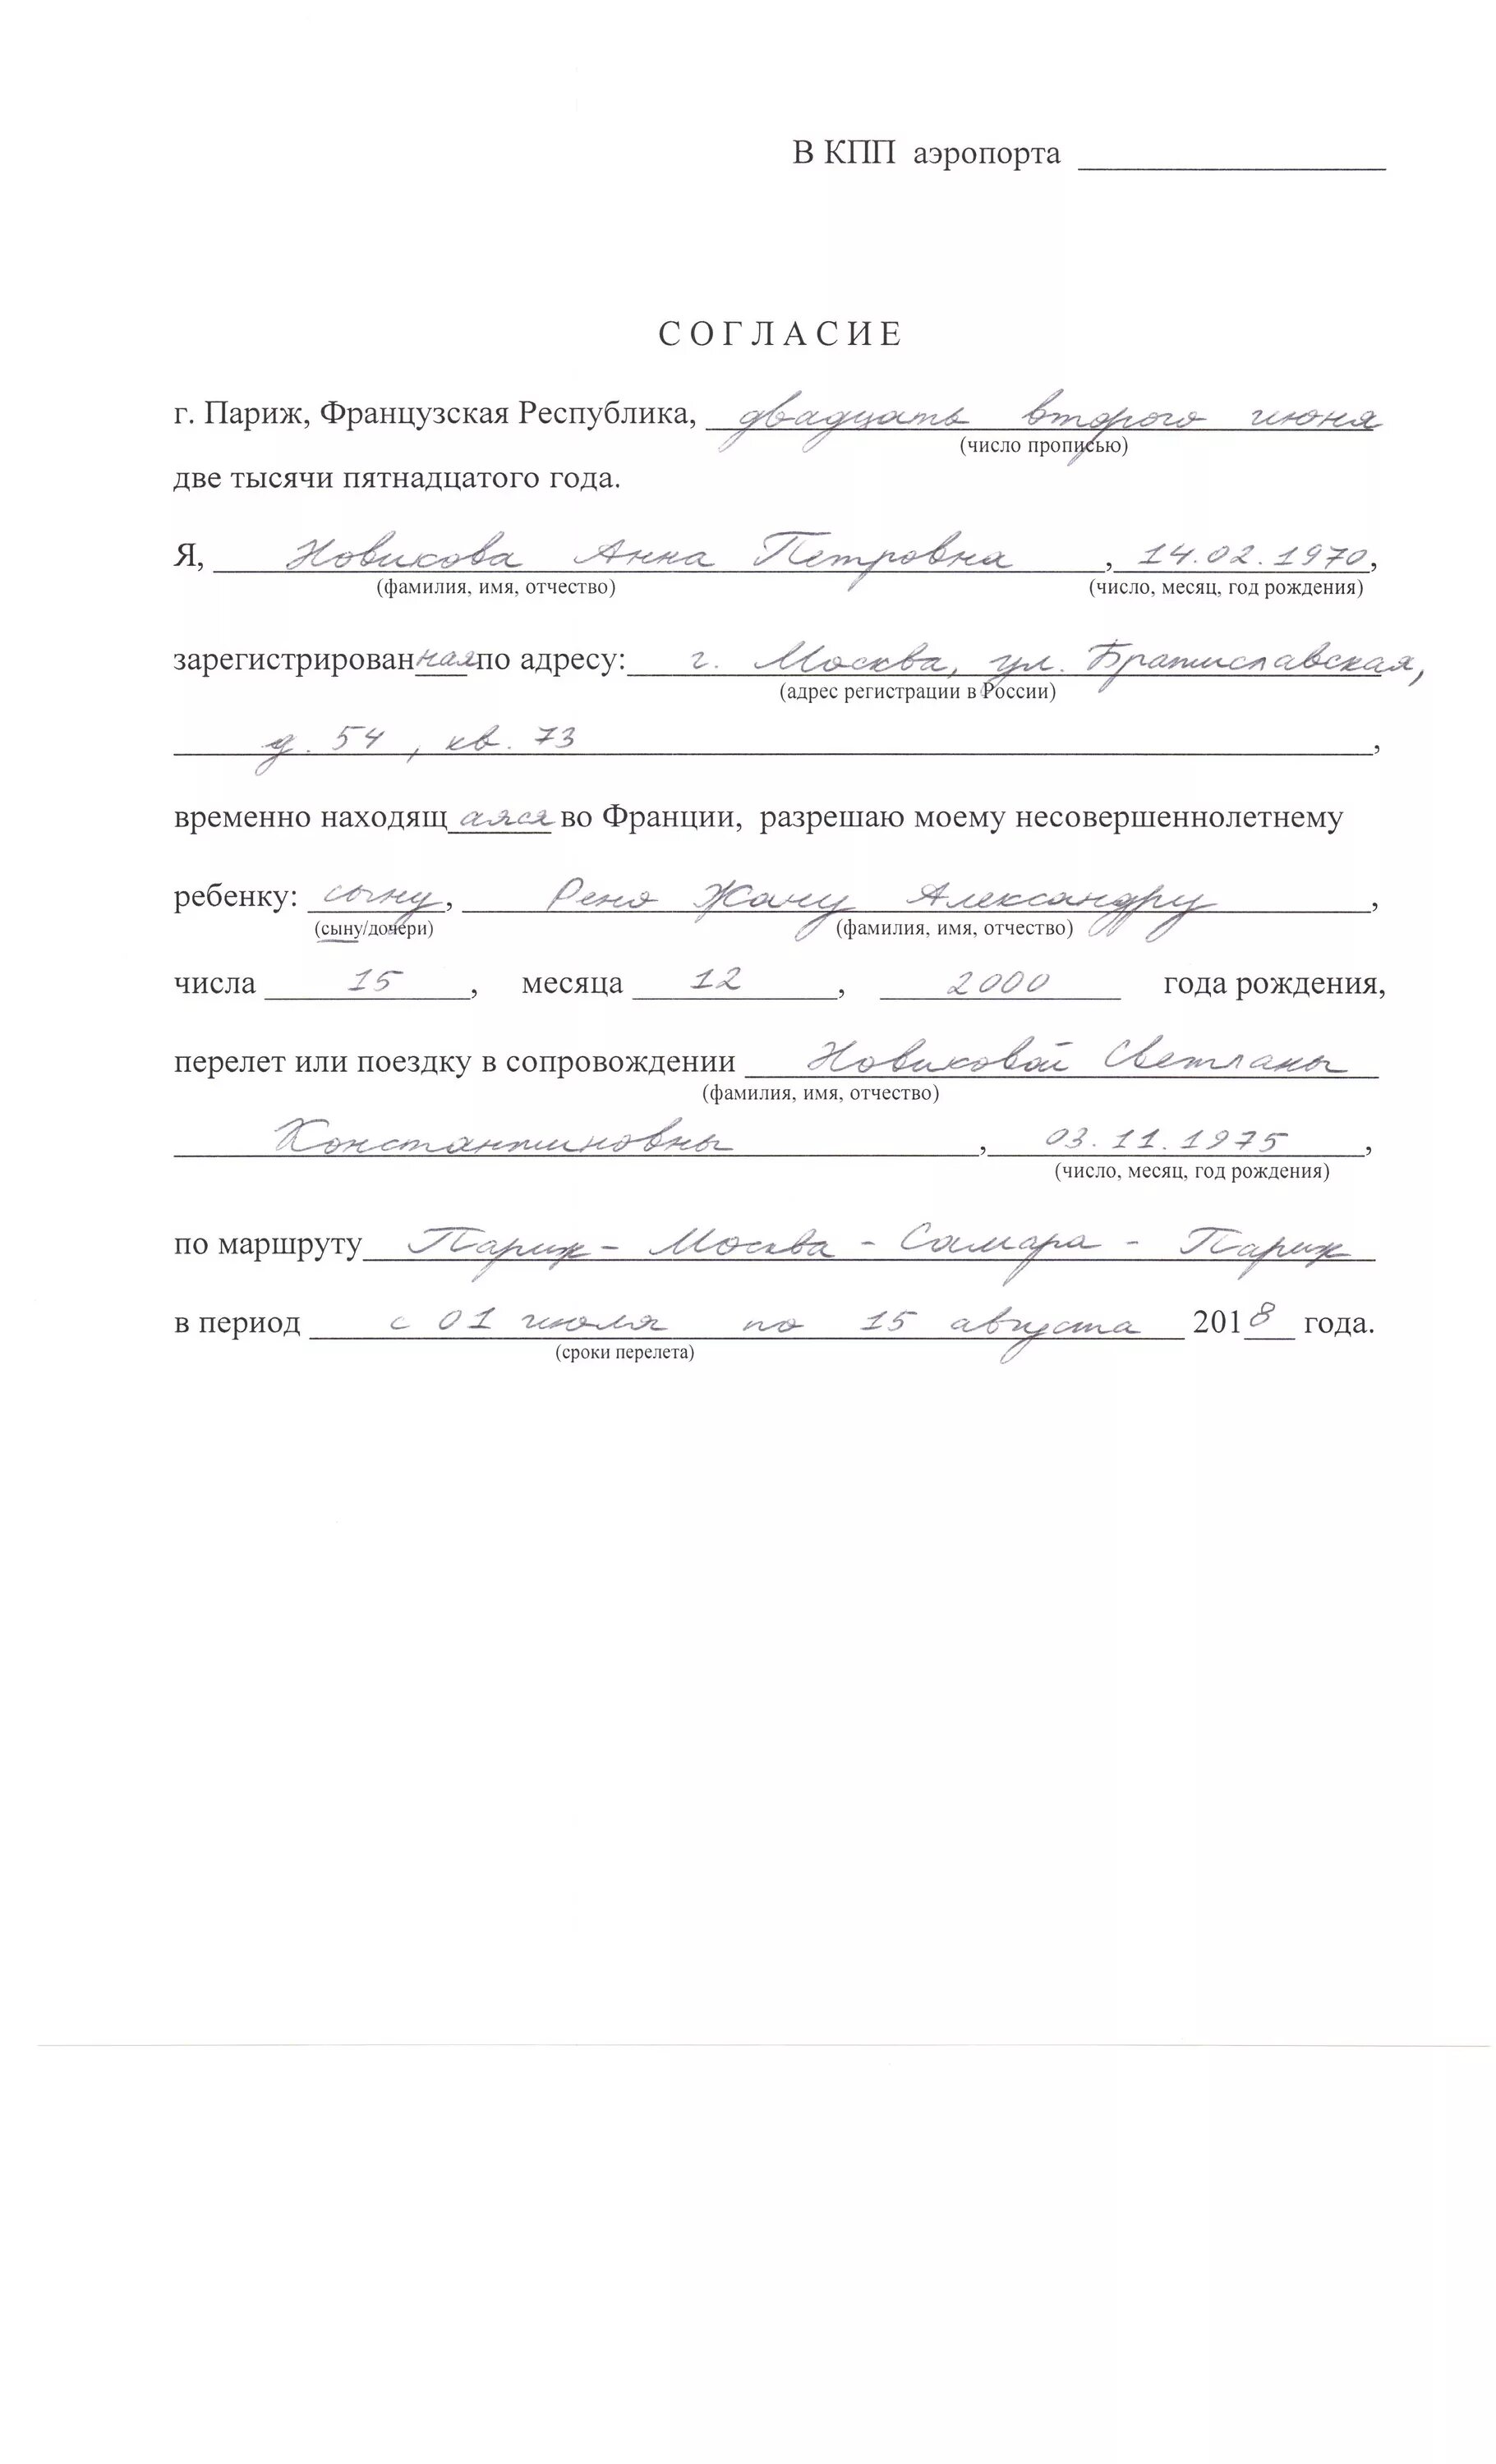 В КПП аэропорта
СОГЛАСИЕ
г. Париж, Французская Республика, двадцать второго июня
(число прописью)
две тысячи пятнадцатого года.
Я, Новикова Анна Петровна, 14.02.1970,
(фамилия, имя, отчество) (число, месяц, год рождения)
зарегистрированная по адресу: г. Москва, ул. Братиславская,
(адрес регистрации в России)
д. 54, кв. 73,
временно находящаяся во Франции, разрешаю моему несовершеннолетнему
ребенку: сыну, Рено Жану Александру,
(сыну/дочери) (фамилия, имя, отчество)
числа 15, месяца 12, 2000 года рождения,
перелет или поездку в сопровождении Новиковой Светланы
(фамилия, имя, отчество)
Константиновны, 03.11.1975,
(число, месяц, год рождения)
по маршруту Париж - Москва - Самара - Париж
в период с 01 июля по 15 августа 2018 года.
(сроки перелета)